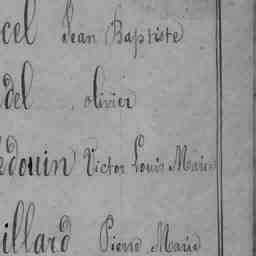 cel Jean Baptiste
del olivier
douin Victor Louis Marie
illard Pierre Marie